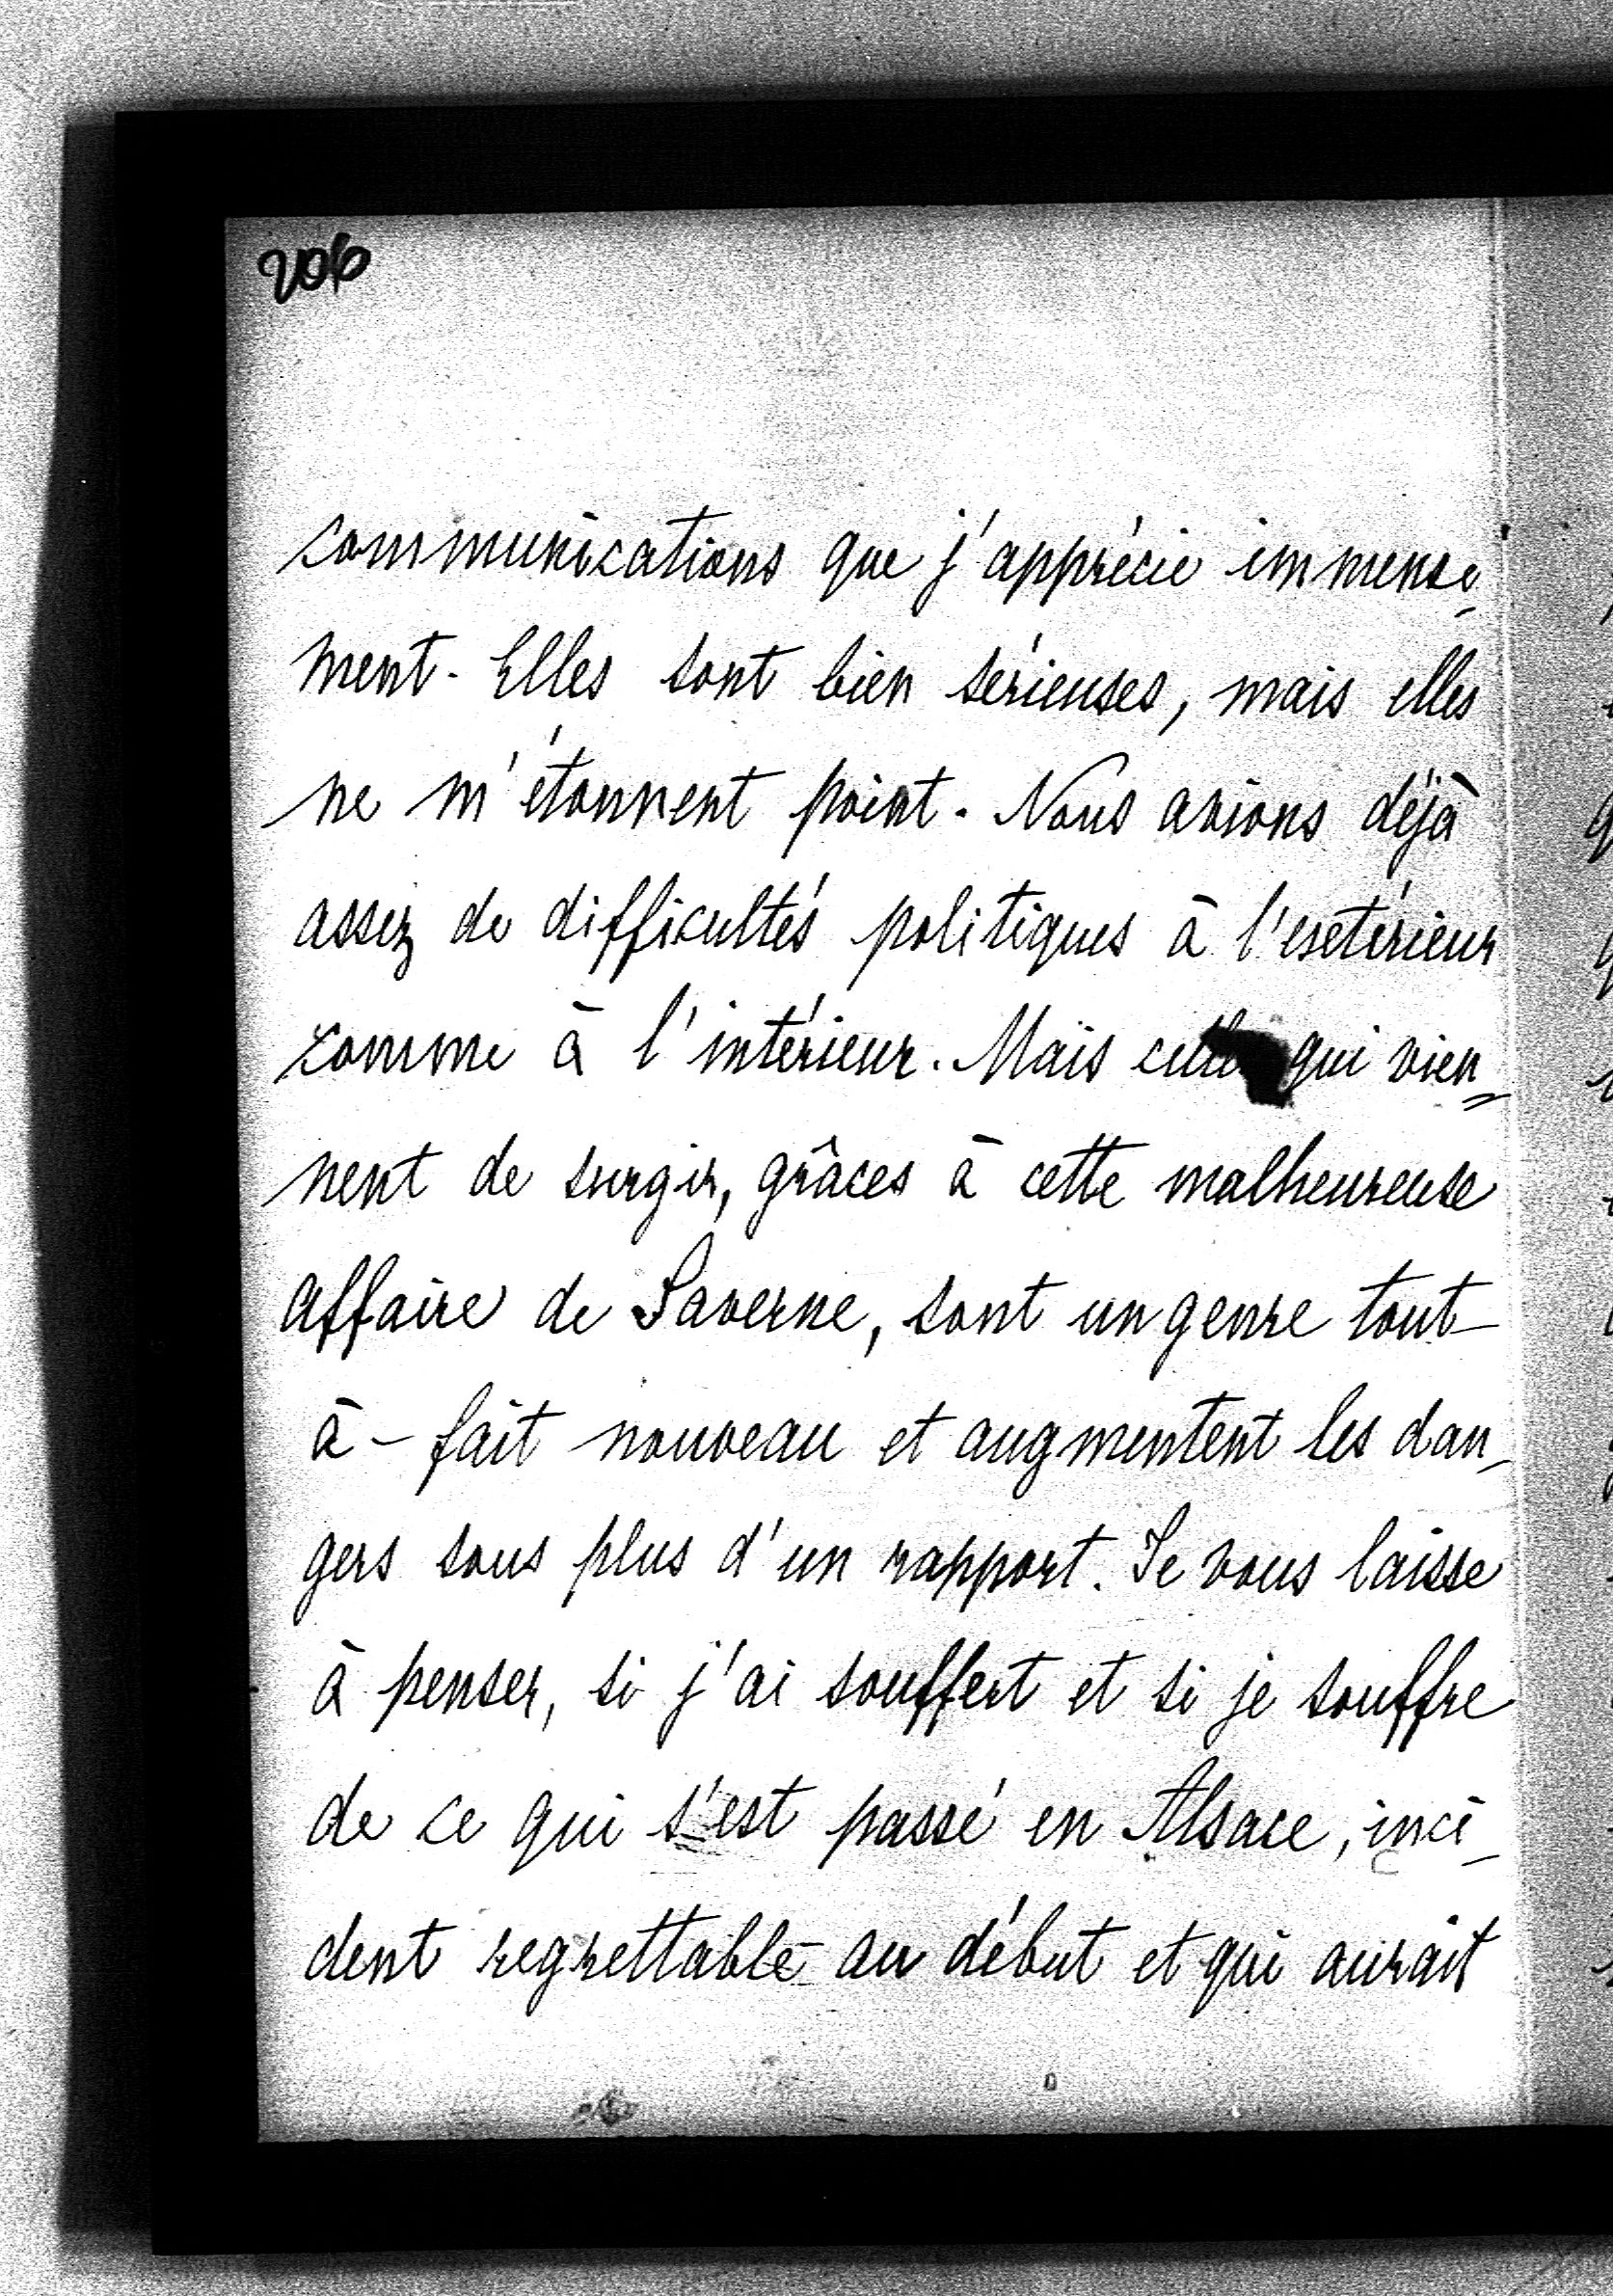 206
communications que j'apprécie immense-
ment. Elles sont bien sérieuses, mais elles
ne m'étonnent point. Nous avions déjà
assez de difficultés politiques à l'extérieur
comme à l'intérieur. Mais qui vien=
nent de surgir, grâces à cette malheureuse
affaire de Saverne, sont un genre tout-
à-fait nouveau et augmentent les dan-
gers sous plus d'un rapport. Je vous laisse
à penser, si j'ai souffert et si je souffre
de ce qui s'est passé en Alsace, inci-
dent regrettable au début et qui aurait